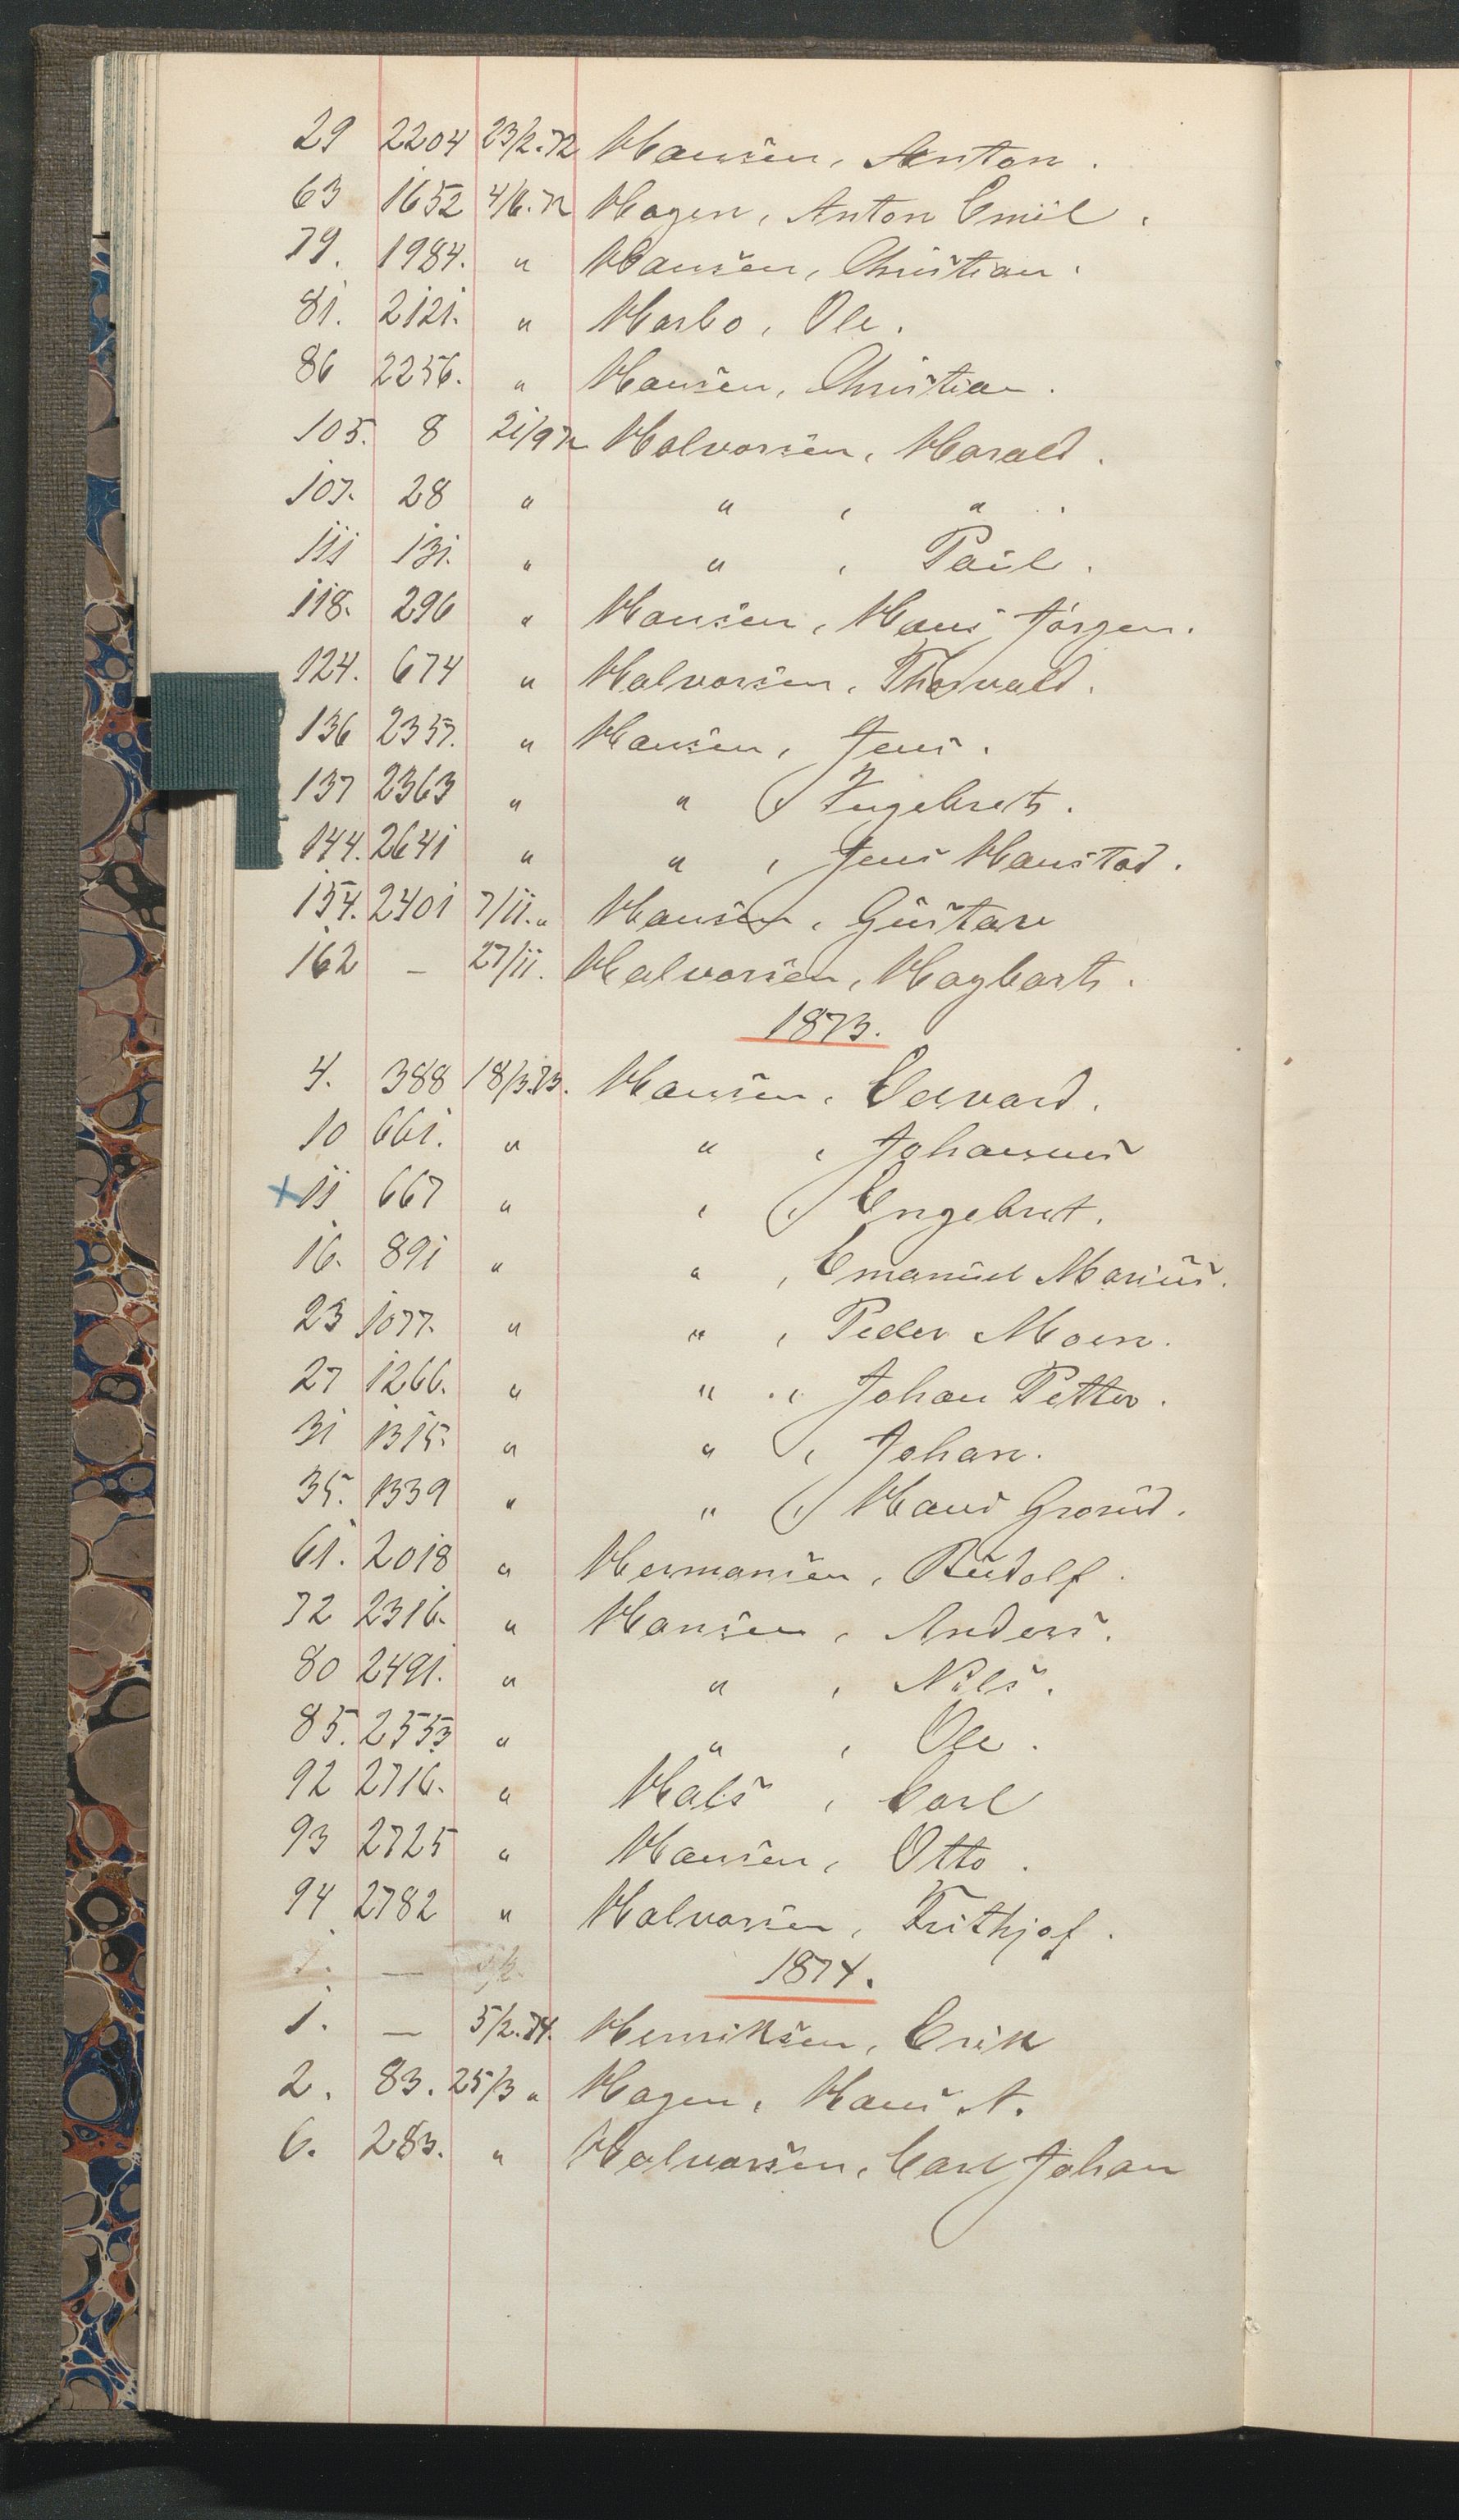 29 2204 23/2.72 Hansen, Anton.
63 1652 4/6.72 Hagen, Anton Emil.
79. 1984. " Hansen, Christian.
81. 2121. " Harbo, Ole.
86 2256. " Hansen, Christian.
105. 8 21/9 72 Halvorsen, Harald.
107. 28 " " , " .
111 131. " " , Paul.
118. 296 " Hansen, Hans Jørgen.
124. 674 " Halvorsen, Thorvald.
136 2357. " Hansen, Jens.
137 2363 " " , Ingebret.
144. 2641 " " , Jens Hanstad.
154. 2401 7/11. " Hansen, Gustav
162 — 27/11. Halvorsen, Hagbart.
1873.
4. 388 18/3.73. Hansen, Edvard.
10 661. " " , Johannes
x 11 667 " " , Engebret.
16. 891 " " , Emanuel Marius.
23 1077. " " , Peder Moen.
27 1266. " " , Johan Petter.
31 1315. " " , Johan.
35. 1339 " " , Hans Grorud.
61. 2018 " Hermansen, Rudolf.
72 2316. " Hansen, Anders.
80 2491. " " , Nils.
85. 2553 " " , Ole.
92 2716. " Hals, Carl
93 2725 " Hansen, Otto.
94 2782 " Halvorsen, Frithjof.
1874.
1. — 5/2.74. Henriksen, Erik
2. 83. 25/3 " Hagen, Hans A.
6. 283. " Halvorsen, Carl Johan